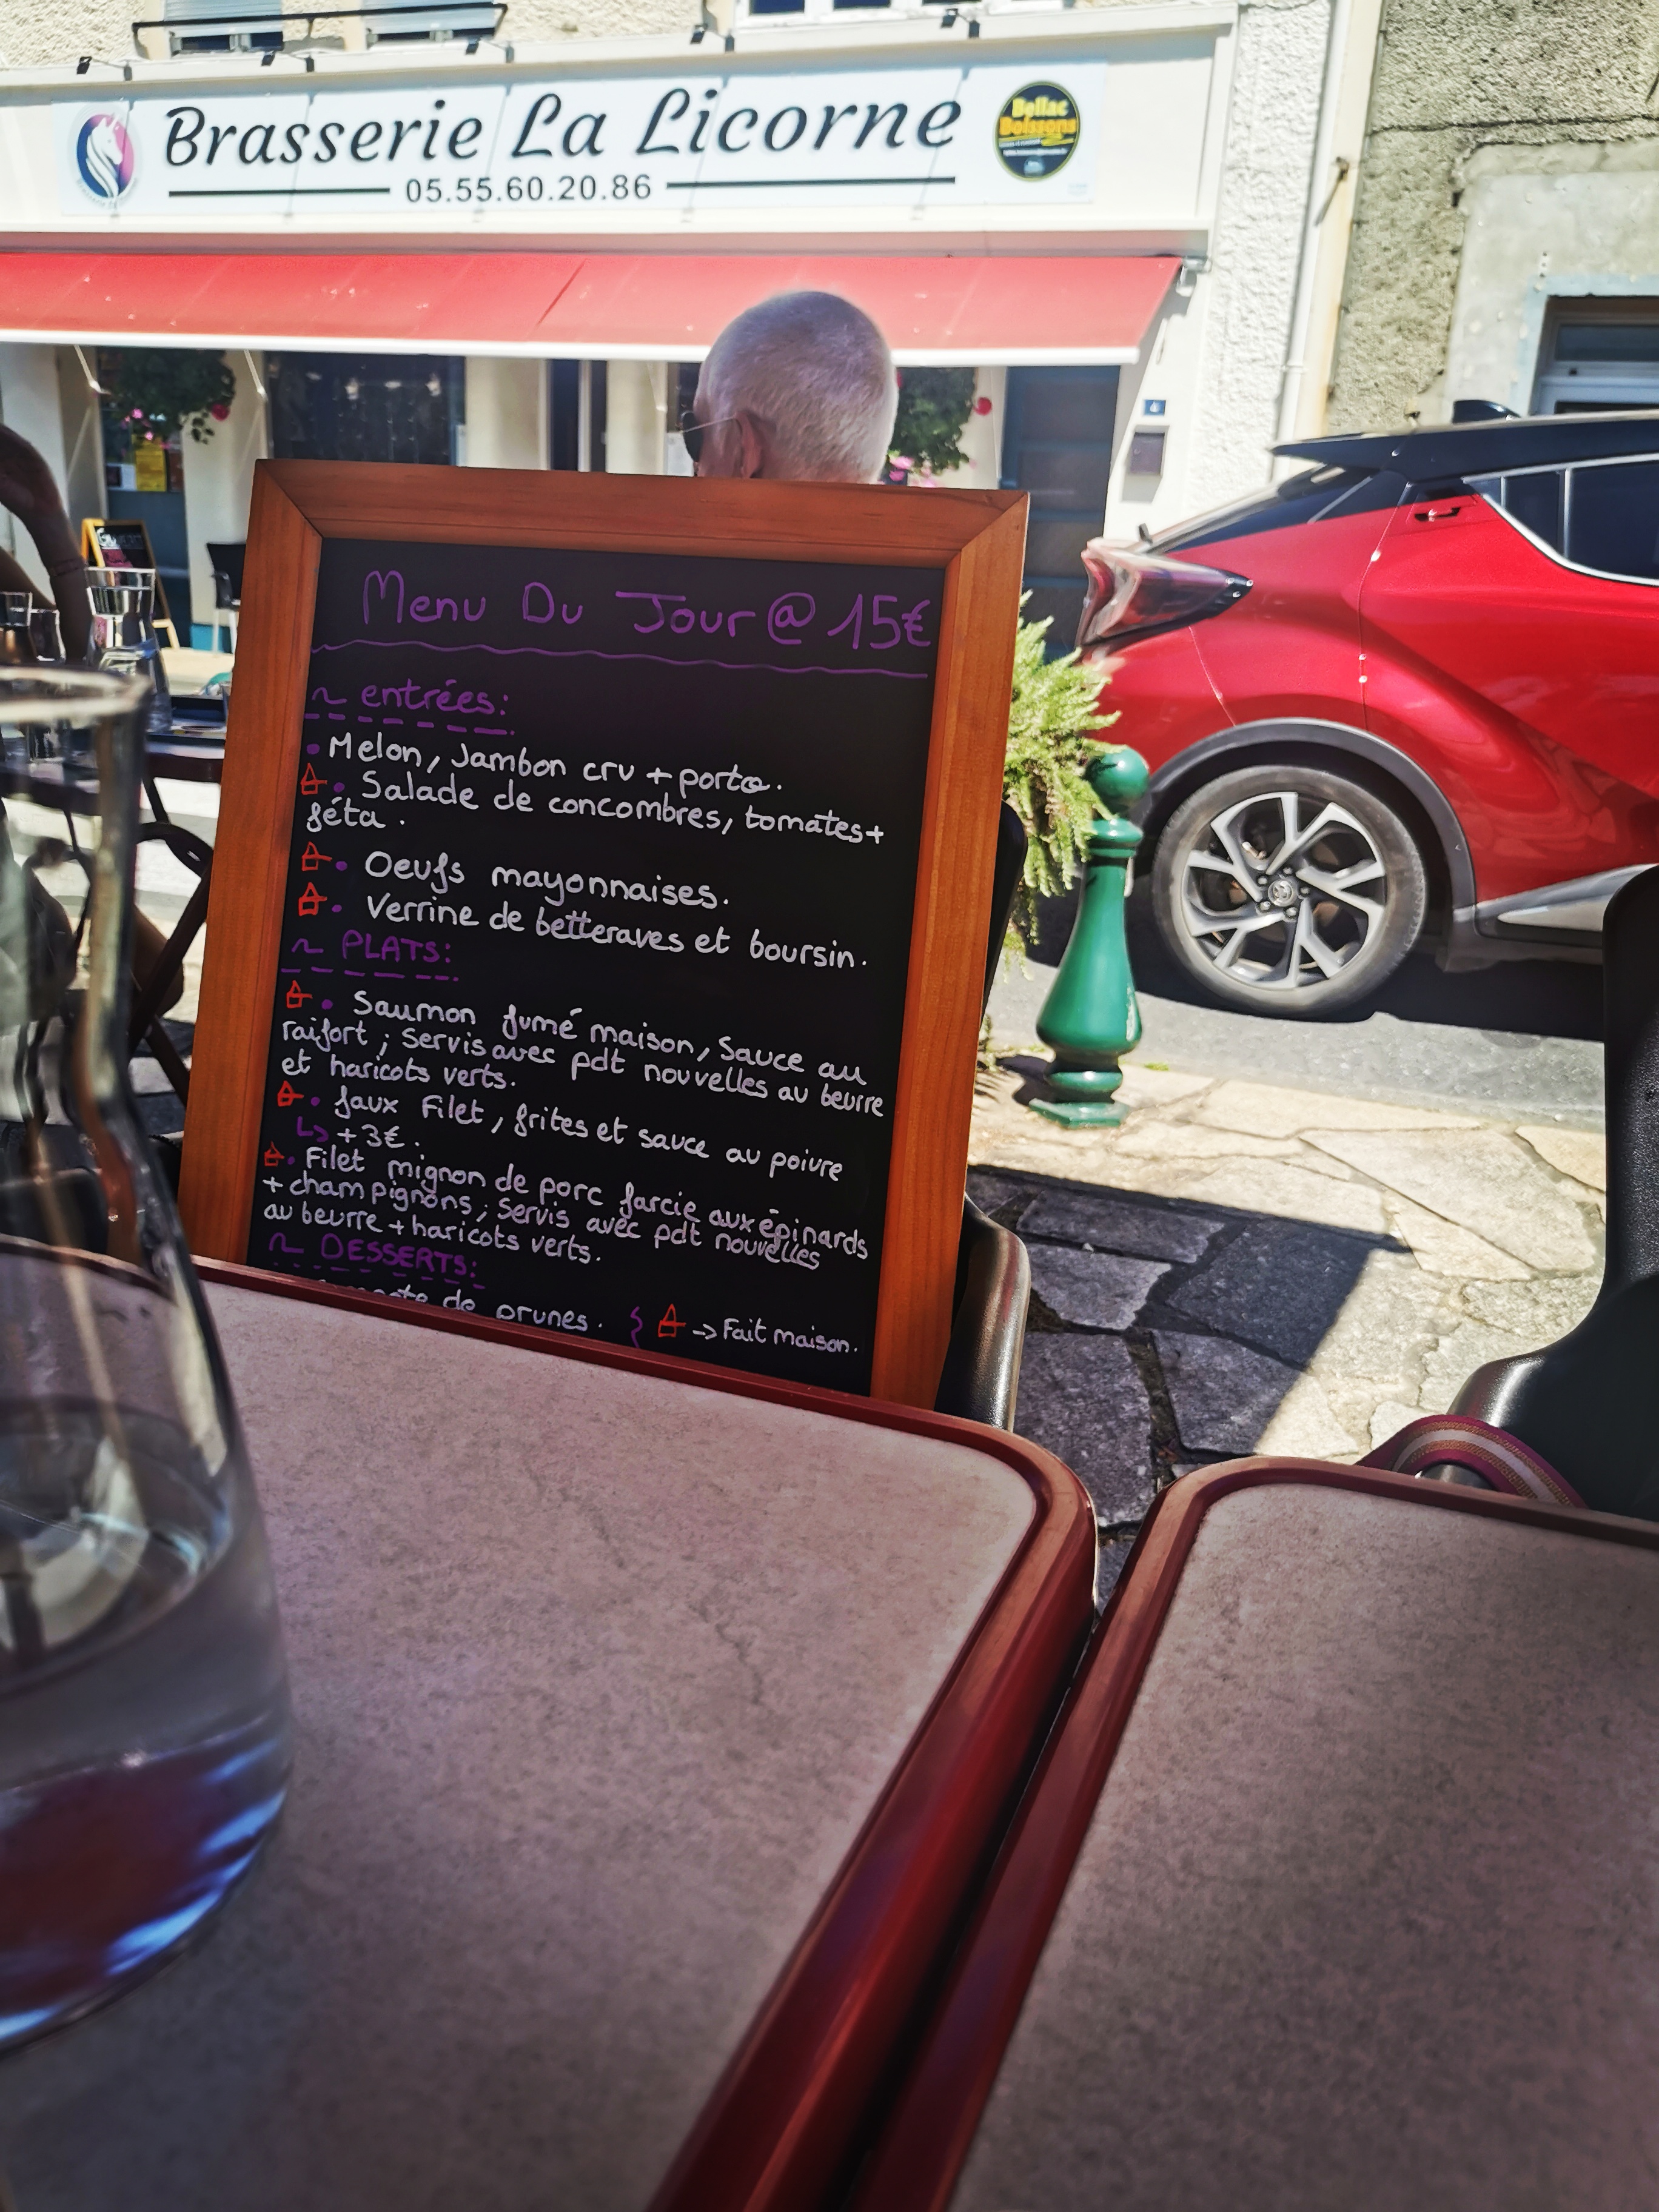 Brasserie La Licorne
05.55.60.20.86
Bellac
Boissons
Menu Du Jour @ 15€
~ entrées:
• Melon, Jambon cru + porto.
• Salade de concombres, tomates +
féta.
• Oeufs mayonnaises.
• Verrine de betteraves et boursin.
~ PLATS:
• Saumon fumé maison, Sauce au
raifort ; Servis avec pdt nouvelles au beurre
et haricots verts.
• faux Filet, frites et sauce au poivre
↳ +3€.
• Filet mignon de porc farcie aux épinards
+ champignons ; Servis avec pdt nouvelles
au beurre + haricots verts.
~ DESSERTS:
de prunes. } → Fait maison.